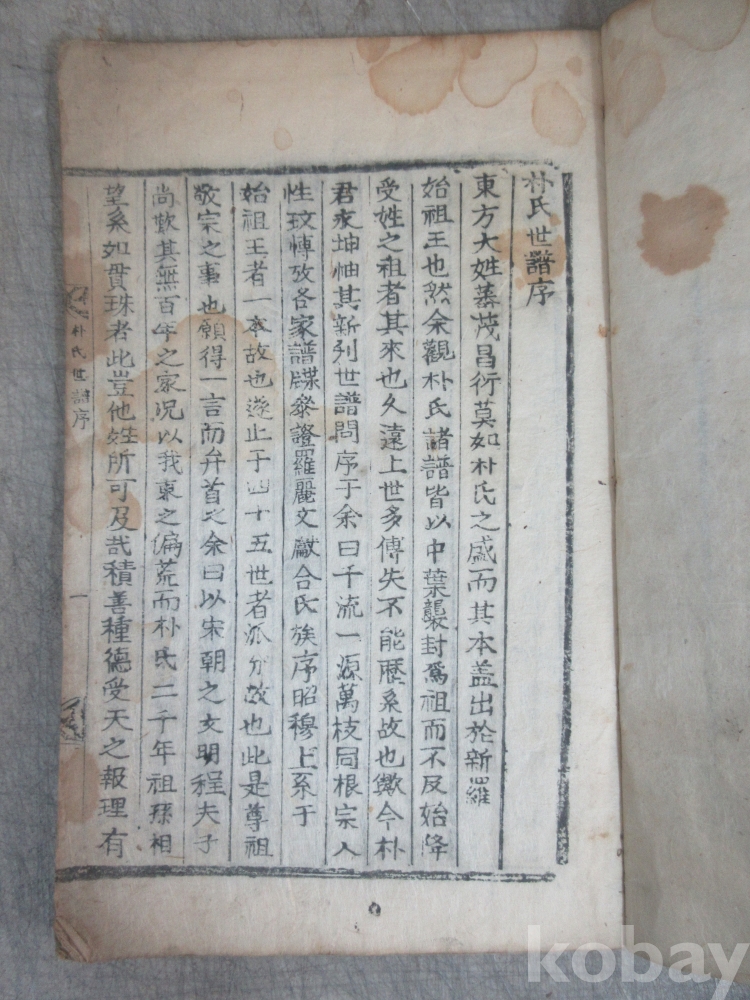 朴氏世譜序
東方大姓蕃茂昌衍莫如朴氏之盛而其本盖出於新羅
始祖王也然余觀朴氏諸譜皆以中葉襲封爲祖而不反始降
受姓之祖者其來也久遠上世多傳失不能歷系故也歟今朴
君永坤怞其新列世譜問序于余曰千流一源萬枝同根宗人
性玟愽攷各家譜牒叅證羅麗文獻合氏族序昭穆上系于
始祖王者一本故也遂止于四十五世者派分故也此是尊祖
敬宗之事也願得一言而弁首之余曰以宋朝之文明程夫子
尚歎其無百年之家况以我東之偏荒而朴氏二千年祖孫相
望系如貫珠者此豈他姓所可及哉積善種德受天之報理有
朴氏世譜序
一
kobay